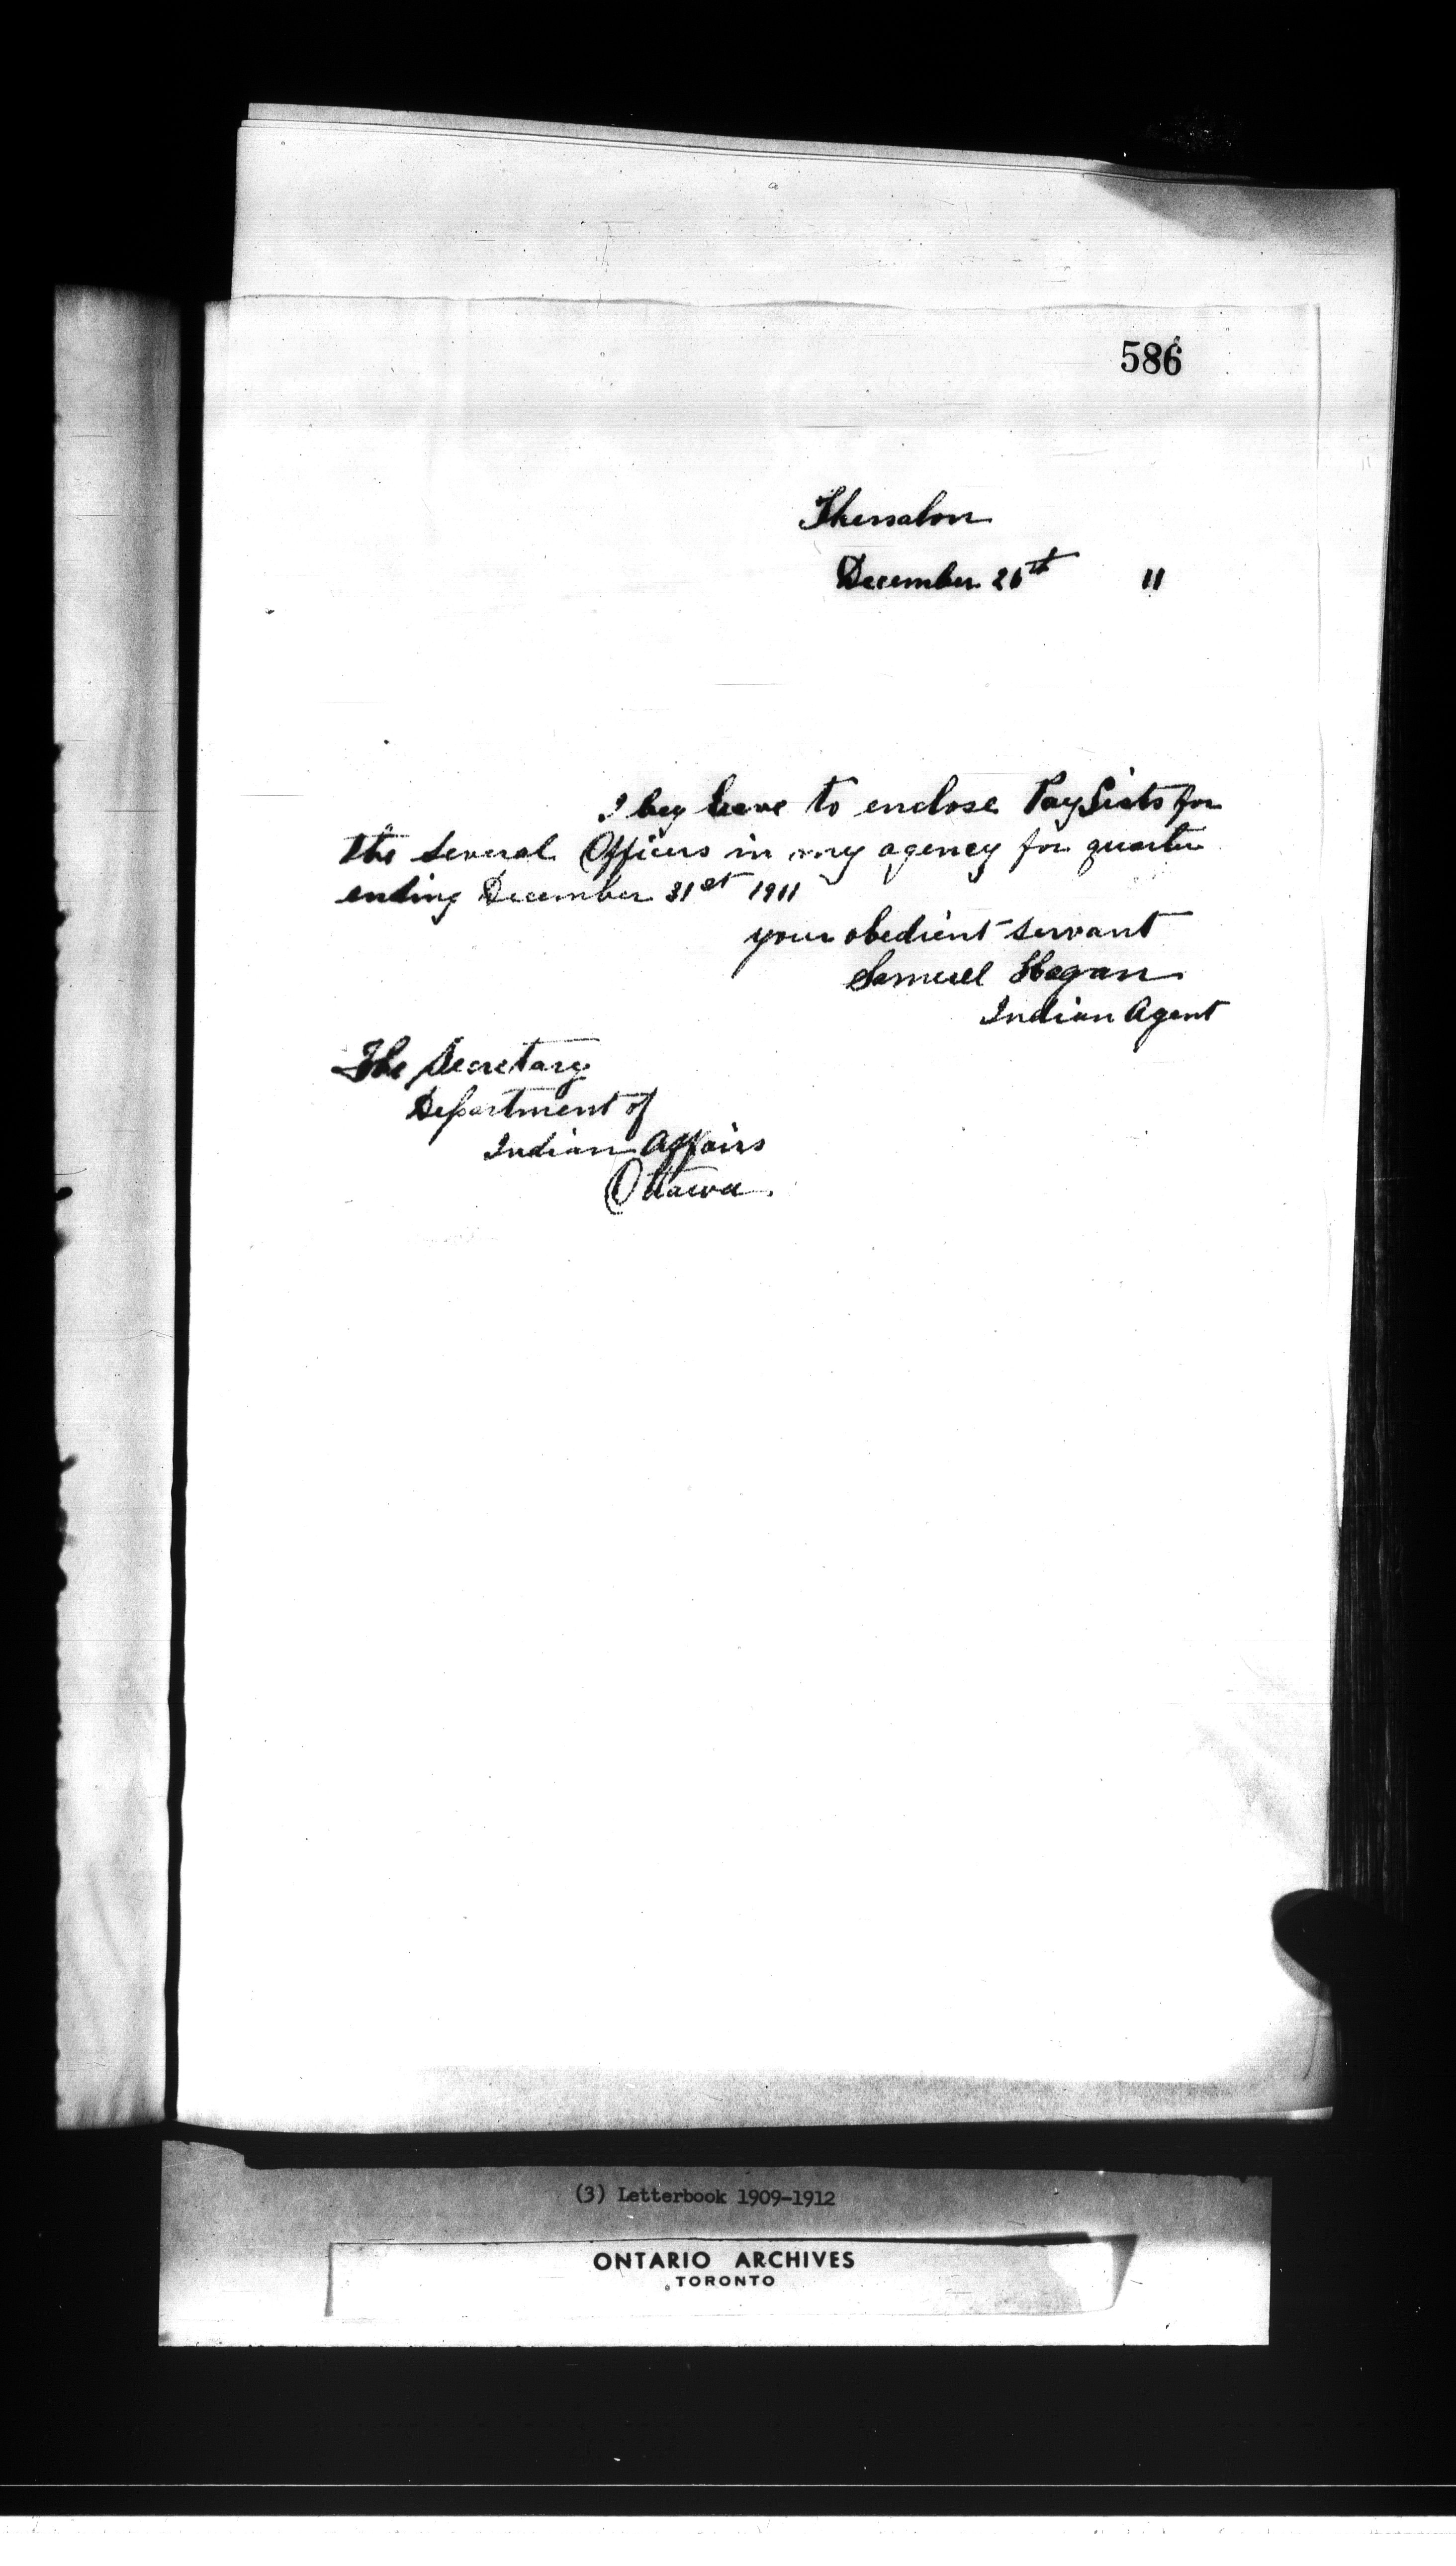 586
Thessalon
December 26th 11
I beg leave to enclose Pay Lists for
the several Officers in my agency for quarter
ending December 31st 1911
your obedient servant
Samuel Hagan
Indian Agent
The Secretary
Department of
Indian Affairs
Ottawa.
(3) Letterbook 1909-1912
ONTARIO ARCHIVES
TORONTO